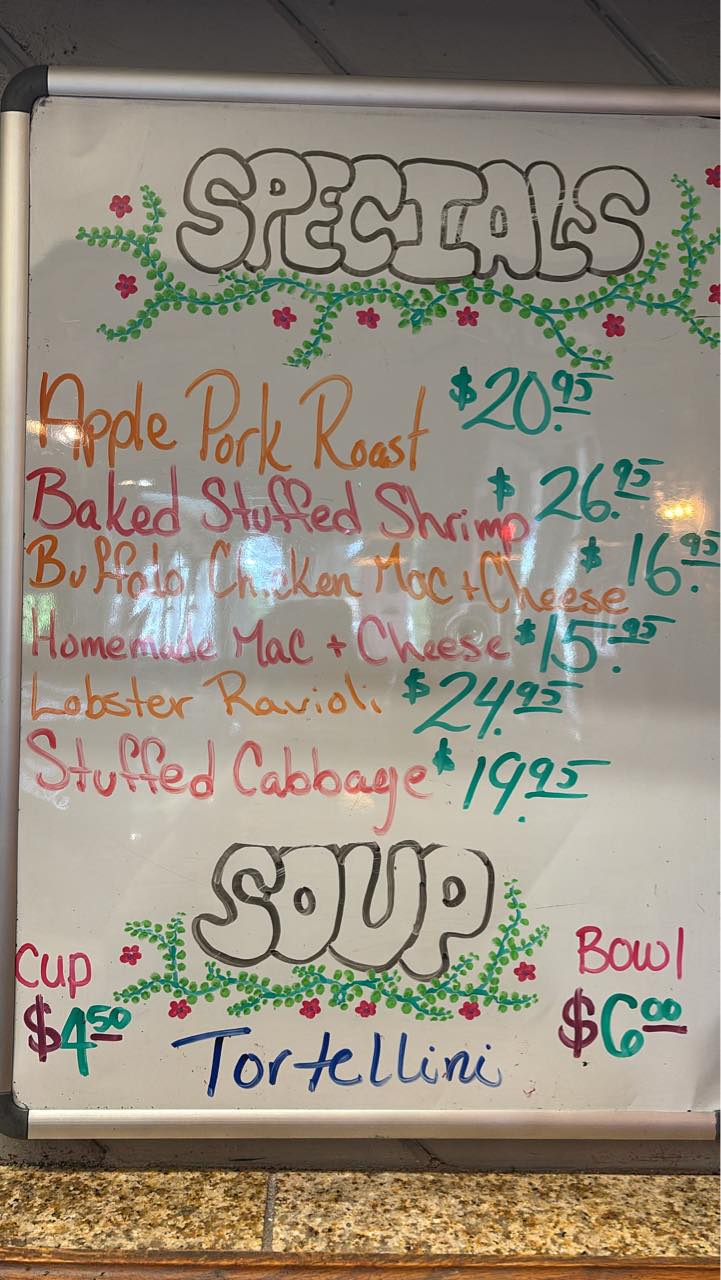 SPECIALS
Apple Pork Roast $20.95
Baked Stuffed Shrimp $26.95
Buffalo Chicken Mac + Cheese $16.95
Homemade Mac + Cheese $15.95
Lobster Ravioli $24.95
Stuffed Cabbage $19.95
SOUP
Cup Bowl
$4.50 $6.00
Tortellini